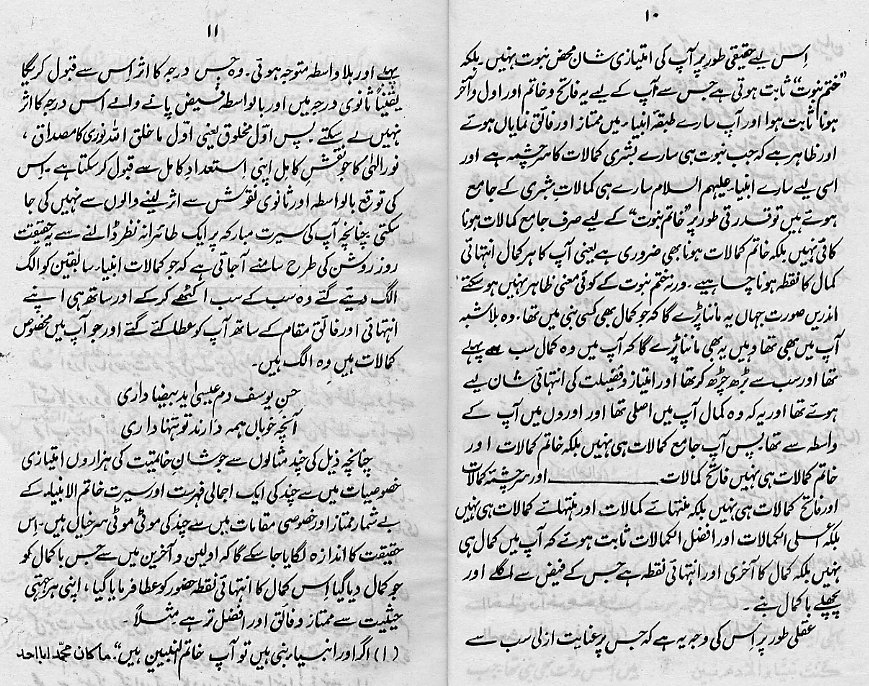 ۱۰
اس لیے حقیقی طور پر آپ کی امتیازی شان محض نبوت نہیں ۔ بلکہ
”ختم نبوت“ ثابت ہوتی ہے جس سے آپ کے لیے یہ فاتح و خاتم اور اول و آخر
ہونا ثابت ہوا اور آپ سارے طبقۂ انبیاء میں ممتاز اور فائق نمایاں ہوئے
اور ظاہر ہے کہ جب نبوت ہی سارے بشری کمالات کا سرچشمہ ہے اور
اسی لیے سارے انبیاء علیہم السلام سارے ہی کمالات بشری کے جامع
ہوئے ہیں تو قدرتی طور پر ”خاتم نبوت“ کے لیے صرف جامع کمالات ہونا
کافی نہیں بلکہ خاتم کمالات ہونا بھی ضروری ہے یعنی آپ کا ہر کمال انتہائی
کمال کا نقطہ ہونا چاہیے ۔ ورنہ ختم نبوت کے کوئی معنی ظاہر نہیں ہو سکتے
اندریں صورت جہاں یہ ماننا پڑے گا کہ جو کمال بھی کسی نبی میں تھا ۔ وہ بلا شبہ
آپ میں بھی تھا وہیں یہ بھی ماننا پڑے گا کہ آپ میں وہ کمال سب سے پہلے
تھا اور سب سے بڑھ چڑھ کر تھا اور امتیاز و فضیلت کی انتہائی شان لیے
ہوئے تھا اور یہ کہ وہ کمال آپ میں اصلی تھا اور اوروں میں آپ کے
واسطہ سے تھا ۔ پس آپ جامع کمالات ہی نہیں بلکہ خاتم کمالات اور
خاتم کمالات ہی نہیں فاتح کمالات ــــــــ اور سرچشمۂ کمالات
اور فاتح کمالات ہی نہیں بلکہ منتہائے کمالات اور منتہائے کمالات ہی نہیں
بلکہ اعلی الکمالات اور افضل الکمالات ثابت ہوئے کہ آپ میں کمال ہی
نہیں بلکہ کمال کا آخری اور انتہائی نقطہ ہے جس کے فیض سے اگلے اور
پچھلے با کمال بنے ۔
عقلی طور پر اس کی وجہ یہ ہے کہ جس پر عنایت ازلی سب سے
۱۱
پہلے اور بلا واسطہ متوجہ ہوئی ۔ وہ جس درجہ کا اثر اس سے قبول کریگا
یقیناً ثانوی درجہ میں اور بالواسطہ فیض پانے والے اس درجہ کا اثر
نہیں لے سکتے ۔ پس اول مخلوق یعنی اول ما خلق اللہ نوری کا مصداق ،
نور الٰہی کا جو نقش کامل اپنی استعداد کامل سے قبول کر سکتا ہے ۔ اس
کی توقع بالواسطہ اور ثانوی نقوش سے اثر لینے والوں سے نہیں کی جا
سکتی چنانچہ آپ کی سیرت مبارکہ پر ایک طائرانہ نظر ڈالنے سے یہ حقیقت
روز روشن کی طرح سامنے آ جاتی ہے کہ جو کمالات انبیاء سابقین کو الگ
الگ دیئے گئے وہ سب کے سب اکٹھے کر کے اور ساتھ ہی اپنے
انتہائی اور فائق مقام کے ساتھ آپ کو عطا کئے گئے اور جو آپ میں مخصوص
کمالات ہیں وہ الگ ہیں ۔
حسن یوسف دم عیسیٰ ید بیضا داری
آنچہ خوباں ہمہ دارند تو تنہا داری
چنانچہ ذیل کی چند مثالوں سے جو شان خاتمیت کی ہزاروں امتیازی
خصوصیات میں سے چند کی ایک اجمالی فہرست اور سیرت خاتم الانبیاء کے
بے شمار ممتاز اور خصوصی مقامات میں سے چند کی موٹی موٹی سرخیاں ہیں ۔ اس
حقیقت کا اندازہ لگایا جا سکے گا کہ اولین و آخرین میں سے جس با کمال کو
جو کمال دیا گیا اس کمال کا انتہائی نقطہ حضور کو عطا فرمایا گیا ، اپنی ہر جہتی
حیثیت سے ممتاز و فائق اور افضل تر ہے مثلاً ۔
(۱) اگر اور انبیاء نبی ہیں تو آپ خاتم النبیین ہیں ”ما کان محمد ابا احد